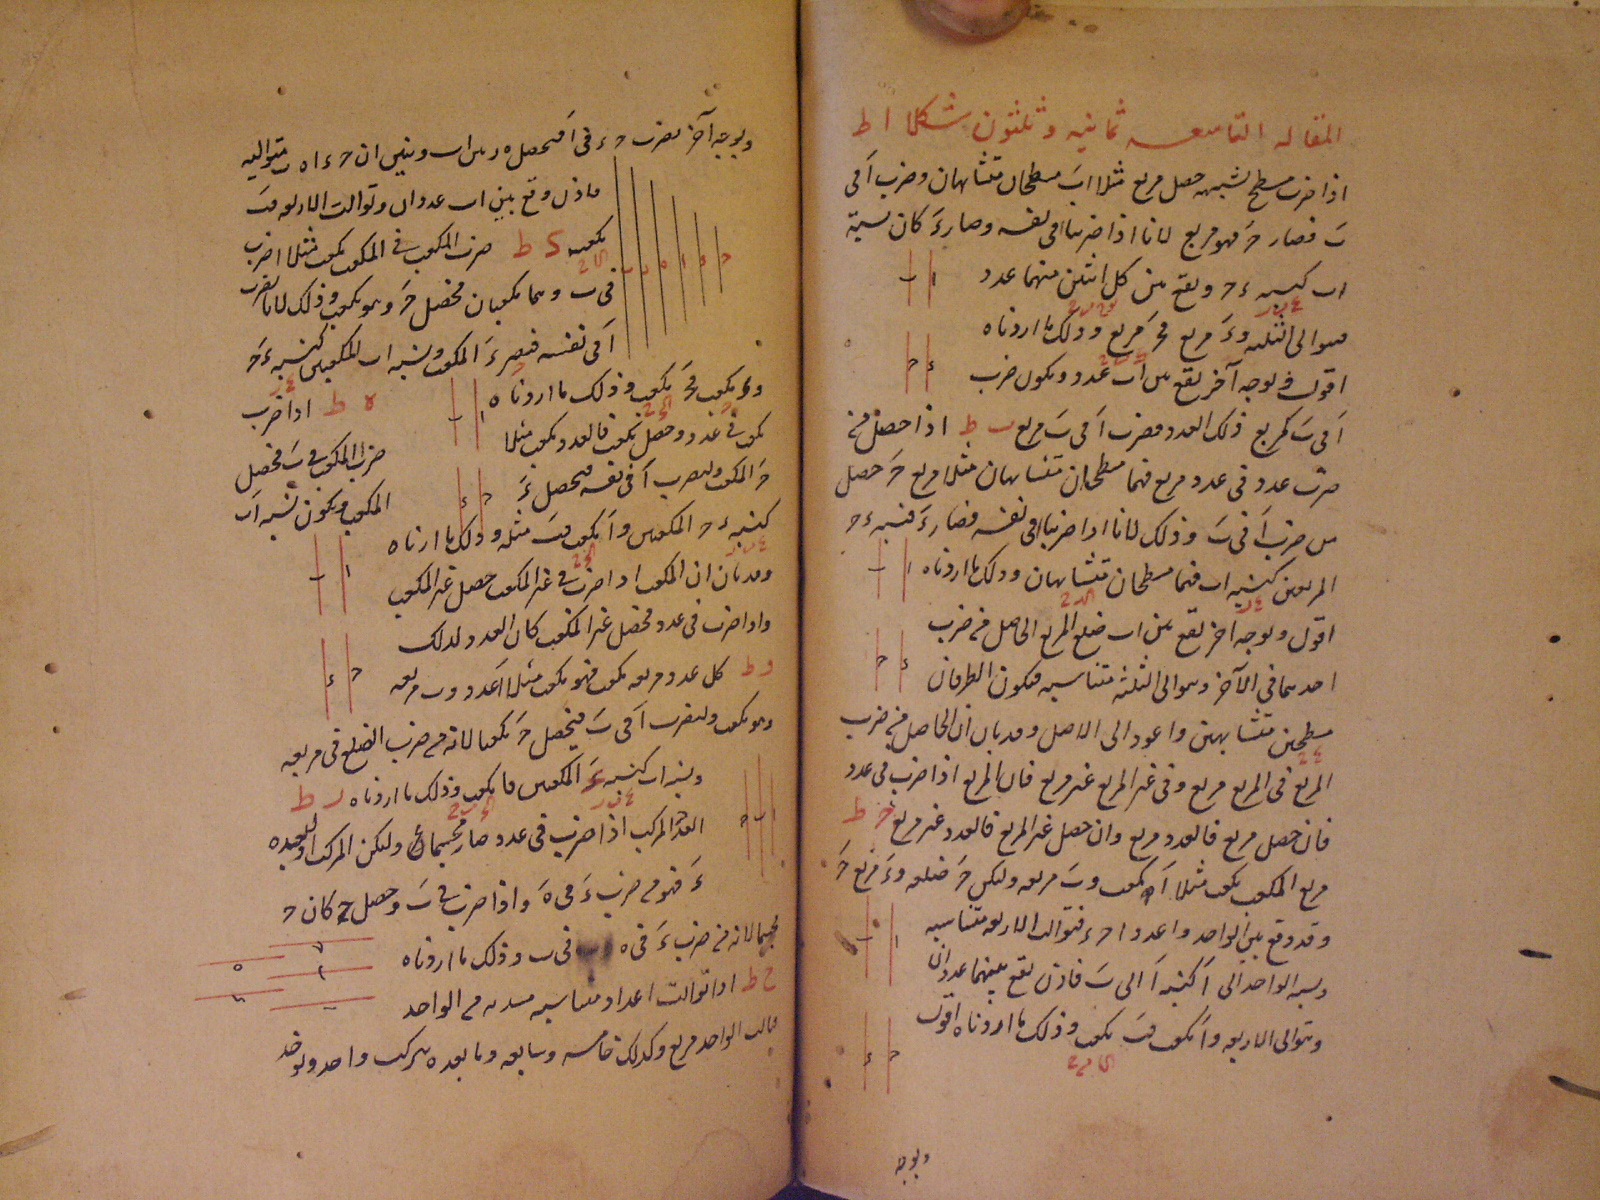 المقاله التاسعه ثمانيه وثلثون شكلا ا ط
اذا ضرب مسطح لشبيهه حصل مربع مثلا اب مسطحان متشابهان وضرب ا فى
ب فصار ح فهو مربع لانا اذا ضربنا ا فى نفسه وصار ء كان نسبة
اب كنسبه ء ح ويقع بين كل اثنين منهما عدد
فيتوالى الثلثه و ء مربع فح مربع وذلك ما اردناه
اقول وبوجه آخر يقع بين اب عدد ويكون ضرب
ا فى ب كمربع ذلك العدد فضرب ا فى ب مربع ب ط اذا حصل من
ضرب عدد فى عدد مربع فهما مسطحان متشابهان مثلا مربع ح حصل
من ضرب ا فى ب وذلك لانا اذا ضربنا ا فى نفسه فصار ء فنسبه ء ح
المربعين كنسبه اب فهما مسطحان متشابهان وذلك ما اردناه
اقول وبوجه آخر يقع بين اب ضلع المربع الحاصل من ضرب
احدهما فى الآخر ويتوالى الثلثه متناسبه فيكون الطرفان
مسطحين متشابهين واعود الى الاصل وقد بان ان الحاصل من ضرب
المربع فى المربع مربع وفى غير المربع غير مربع فان المربع اذا ضرب فى عدد
فان حصل مربع فالعدد مربع وان حصل غير المربع فالعدد غير مربع ح ط
مربع المكعب مكعب مثلا ا مكعب و ب مربعه وليكن ح ضلعه و ء مربع ح
وقد وقع بين الواحد و ا عددا ح ء فتوالت الاربعه متناسبه
ونسبه الواحد الى ا كنسبه ا الى ب فاذن يقع بينهما عددان
ويتوالى الاربعه و ا مكعب فب مكعب وذلك ما اردناه اقول
وبوجه
وبوجه آخر نضرب ح ء فى ا فيحصل ه ر بين اب وتبين ان ح ء ا ه ر ب متواليه
فاذن وقع بين اب عددان وتوالت الاربعه فب
مكعب د ط ضرب المكعب فى المكعب مكعب فمثلا ا ضرب
فى ب وهما مكعبان فحصل ح وهو مكعب وذلك لانا نضرب
ا فى نفسه فيصير ء المكعب ونسبه اب المكعبين كنسبه ء ح
و ء مكعب فح مكعب وذلك ما اردناه ه ط اذا ضرب
مكعب فى عدد وحصل مكعب فالعدد مكعب مثلا
ضرب ا المكعب فى ب فحصل
ح المكعب ونضرب ا فى نفسه فيحصل ء
المكعب ويكون نسبه اب
كنسبه ء ح المكعبين و ا مكعب فب مثله وذلك ما اردناه
وقد بان ان المكعب اذا ضرب فى غير المكعب حصل غير المكعب
واذا ضرب فى عدد فحصل غير المكعب كان العدد كذلك
و ط كل عدد مربعه مكعب فهو مكعب مثلا ا عدد و ب مربعه
وهو مكعب ولنضرب ا فى ب فيحصل ح مكعبا لانه من ضرب الضلع فى مربعه
ونسبه اب كنسبه ب ح المكعبين فا مكعب وذلك ما اردناه ر ط
العدد المركب اذا ضرب فى عدد صار مجسما وليكن المركب ا وليعده
ء فهو من ضرب ء فى ه واذا ضرب فى ب وحصل ح كان ح
مجسما لانه من ضرب ء فى ه فى ب وذلك ما اردناه
ح ط اذا توالت اعداد متناسبه مبتدئه من الواحد
فثالث الواحد مربع وكذلك خامسه وسابعه وما بعده بترك واحد واخذ